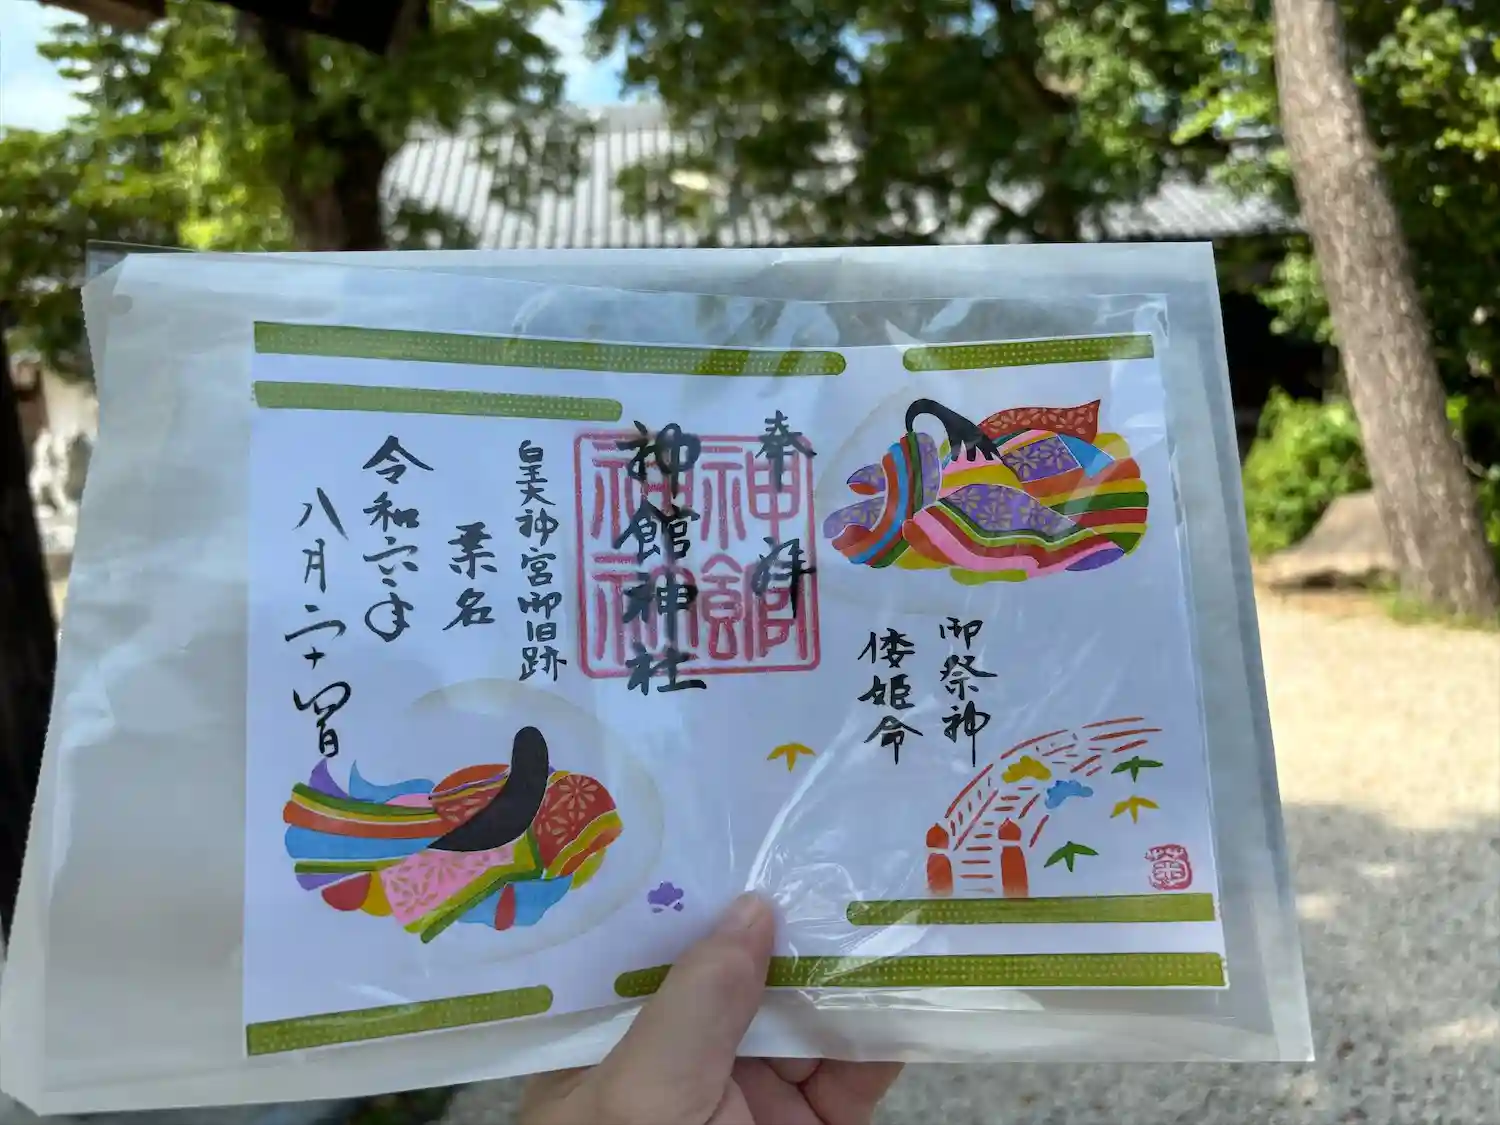 奉拝
御祭神
倭姫命
神館神社
神館
神社
皇大神宮御旧跡
桑名
令和六年
八月二十四日